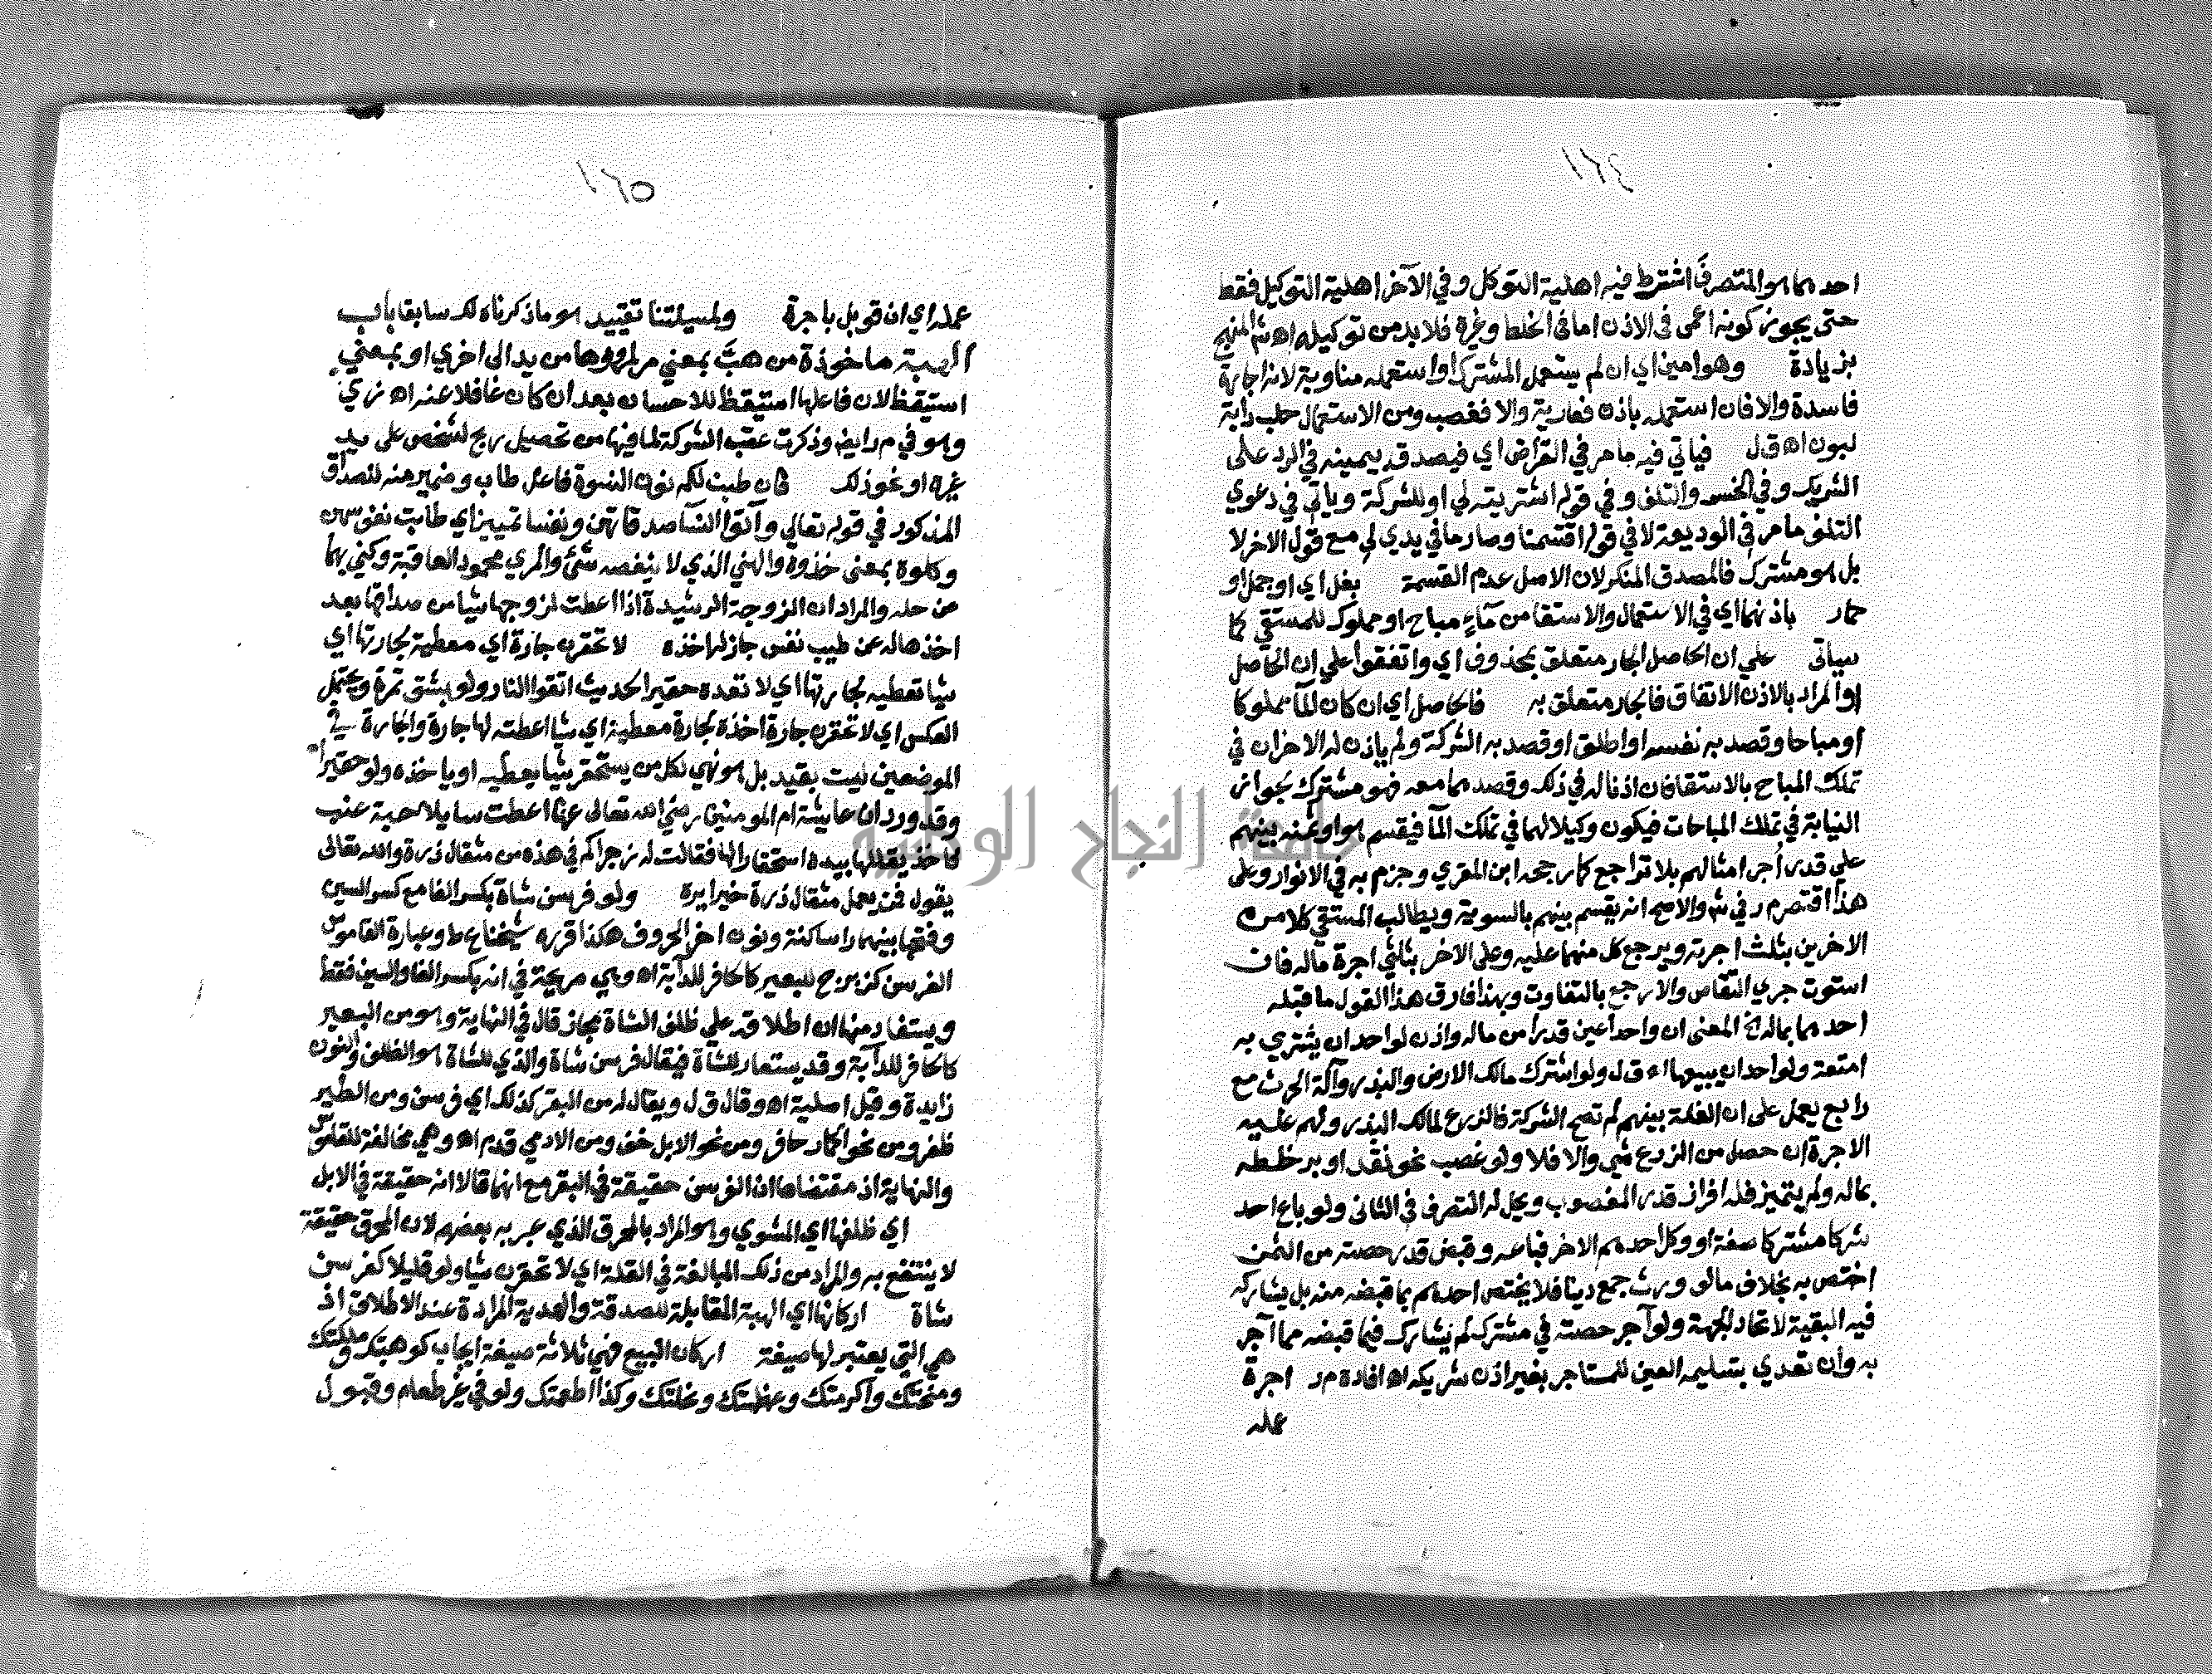 ١٦٤
احدهما هو المتصرف اشترط فيه اهلية التوكل وفي الآخر اهلية التوكيل فقط
حتى يجوز كونه اعمى في الاذن اما في الخلط وغيره فلا بد من توكيله اه ش المنهج
بزيادة وهو امين اي ان لم يستعمل المشترك او استعمله مناوبة لانه اجارة
فاسدة والا فان استعمله باذن فعارية والا فغصب ومن الاستعمال حلب دابة
لبون اه ق ل فياتي فيه ما مر في القراض اي فيصدق بيمينه في الرد على
الشريك وفي الخسر والتلف وفي قوله اشتريته لي او للشركة وياتي في دعوي
التلف ما مر في الوديعة لا في قوله اقتسمنا وصار ما في يدي لي مع قول الاخر لا
بل هو مشترك فالمصدق المنكر لان الاصل عدم القسمة بغل اي او جمل او
حمار باذنهما اي في الاستعمال والاستقا من مآء مباح او مملوك للمستقي كما
سياتي علي ان الحاصل الجار متعلق بمحذوف اي واتفقوا علي ان الحاصل
او المراد بالاذن الاتفاق فالجار متعلق به فالحاصل اي ان كان المآ مملوكا
او مباحا وقصد به نفسه او اطلق او قصد به الشركة ولم ياذن له الاخران في
تملك المباح بالاستقا فان اذنا له في ذلك وقصدهما معه فهو مشترك لجواز
النيابة في تملك المباحات فيكون وكيلا لهما في تملك المآ فيقسم هو او ثمنه بينهم
علي قدر أجر امثالهم بلا تراجع كما رجحه ابن المقري وجزم به في الانوار وعلى
هذا اقتصر م ر في ش والاصح انه يقسم بينهم بالسوية ويطالب المستقي كلا من
الاخرين بثلث اجرته ويرجع كل منهما عليه وعلى الاخر بثلثي اجرة ماله فان
استوت جري التقاص والا رجع بالتفاوت وبهذا فارق هذا القول ما قبله
احدهما بماله الخ المعنى ان واحدا عين قدرا من ماله واذن لواحد ان يشتري به
امتعة ولواحد ان يبيعها اه ق ل ولو اشترك مالك الارض والبذر وآلة الحرث مع
رابع يعمل على ان الغلة بينهم لم تصح الشركة فالزرع لمالك البذر ولهم عليه
الاجرة ان حصل من الزرع شي والا فلا ولو غصب نحو نقد او بر خلطه
بماله ولم يتميز فله افراز قدر المغصوب ويحل له التصرف في الثاني ولو باع احد
شركا مشتركا صفقة او وكل احدهم الاخر فباعه وقبض قدر حصته من الثمن
اختص به بخلاف ما لو ورث جمع دينا فلا يختص احدهم بما قبضه منه بل يشاركه
فيه البقية لاتحاد الجهة ولو آجر حصته في مشترك لم يشارك فيما قبضه مما آجر
به وان تعدي بتسليمه العين للمستاجر بغير اذن شريكه اه افاده م ر اجرة
عمله
١٦٥
عمله اي ان قوبل باجرة ولمسيلتنا تقييد هو ما ذكرناه لك سابقا باب
الهبة ماخوذة من هبَّ بمعني مر لمرورها من يد الى اخري او بمعني
استيقظ لان فاعلها استيقظ للاحسان بعد ان كان غافلا عنه اه زي
وهو في م ر ايضا وذكرت عقب الشركة لما فيها من تحصيل ربح لشخص على يد
غيره او نحو ذلك فان طبن لكم نون النسوة فاعل طاب وضمير منه للصداق
المذكور في قوله تعالي وآتوا النسآ صدقاتهن ونفسا تمييز اي طابت نفوسهن
وكلوه بمعنى خذوه والهني الذي لا ينغصه شئ والمري محمود العاقبة وكني بهما
عن حله والمراد ان الزوجة الرشيدة اذا اعطت لزوجها شيا من صداقها بعد
اخذها له عن طيب نفس جاز له اخذه لا تحقرن جارة اي معطية لجارتها اي
شيا تعطيه لجارتها اي لا تعده حقيرا لحديث اتقوا النار ولو بشق تمرة ويحتمل
العكس اي لا تحقرن جارة اخذه لجارة معطية اي شيا اعطته لها جارة والجارة في
الموضعين ليست بقيد بل هو نهي لكل من يستحقر شيا يعطيه او ياخذه ولو حقيرا
وقد ورد ان عايشة ام المومنين رضي الله تعالى عنها اعطت سايلا حبة عنب
فاخذ يقلبها بيده استحقارا لها فقالت له زجرا كم في هذه من مثقال ذرة والله تعالى
يقول فمن يعمل مثقال ذرة خيرا يره ولو فرسن شاة بكسر الفا مع كسر السين
وفتحها بينهما را ساكنة ونون اخر الحروف هكذا قرره شيخنا ع ط وعبارة القاموس
الفرسن كزبرج للبعير كالحافر للدآبة اه وهي صريحة في انه بكسر الفا والسين فقط
ويستفاد منها ان اطلاقه علي ظلف الشاة مجاز قال في النهاية وهو من البعير
كالحافر للدآبة وقد يستعار للشاة فيقال فرسن شاة والذي للشاة هو الظلف والنون
زايدة وقيل اصلية اه وقال ق ل ويقال له من البقر كذلك اي فرسن ومن الطير
ظفر ومن نحو الحمار حافر ومن نحو الابل خف ومن الادمي قدم اه وهي مخالفة للقاموس
والنهاية اذ مقتضاها ان الفرسن حقيقة في البقر مع انهما قالا انه حقيقة في الابل
اي ظلفها اي المشوي وهو المراد بالمحرق الذي عبر به بعضهم لان المحرق حقيقة
لا ينتفع به والمراد من ذلك المبالغة في القلة اي لا تحقرن شيا ولو قليلا كفرسن
شاة اركانها اي الهبة المقابلة للصدقة والهدية المرادة عند الاطلاق اذ
هي التي يعتبر لها صيغة اركان البيع فهي ثلاثة صيغة ايجاب كوهبتك وملكتك
ومنحتك وآكرمتك وعظمتك ونحلتك وكذا اطعمتك ولو في غير طعام وقبول